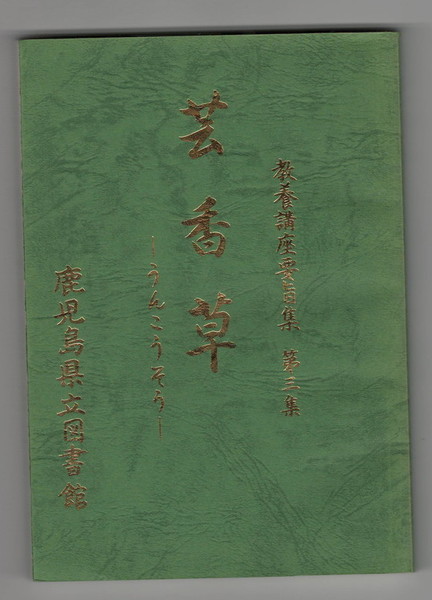 教養講座要旨集 第三集
芸香草
―うんこうそう―
鹿児島県立図書館